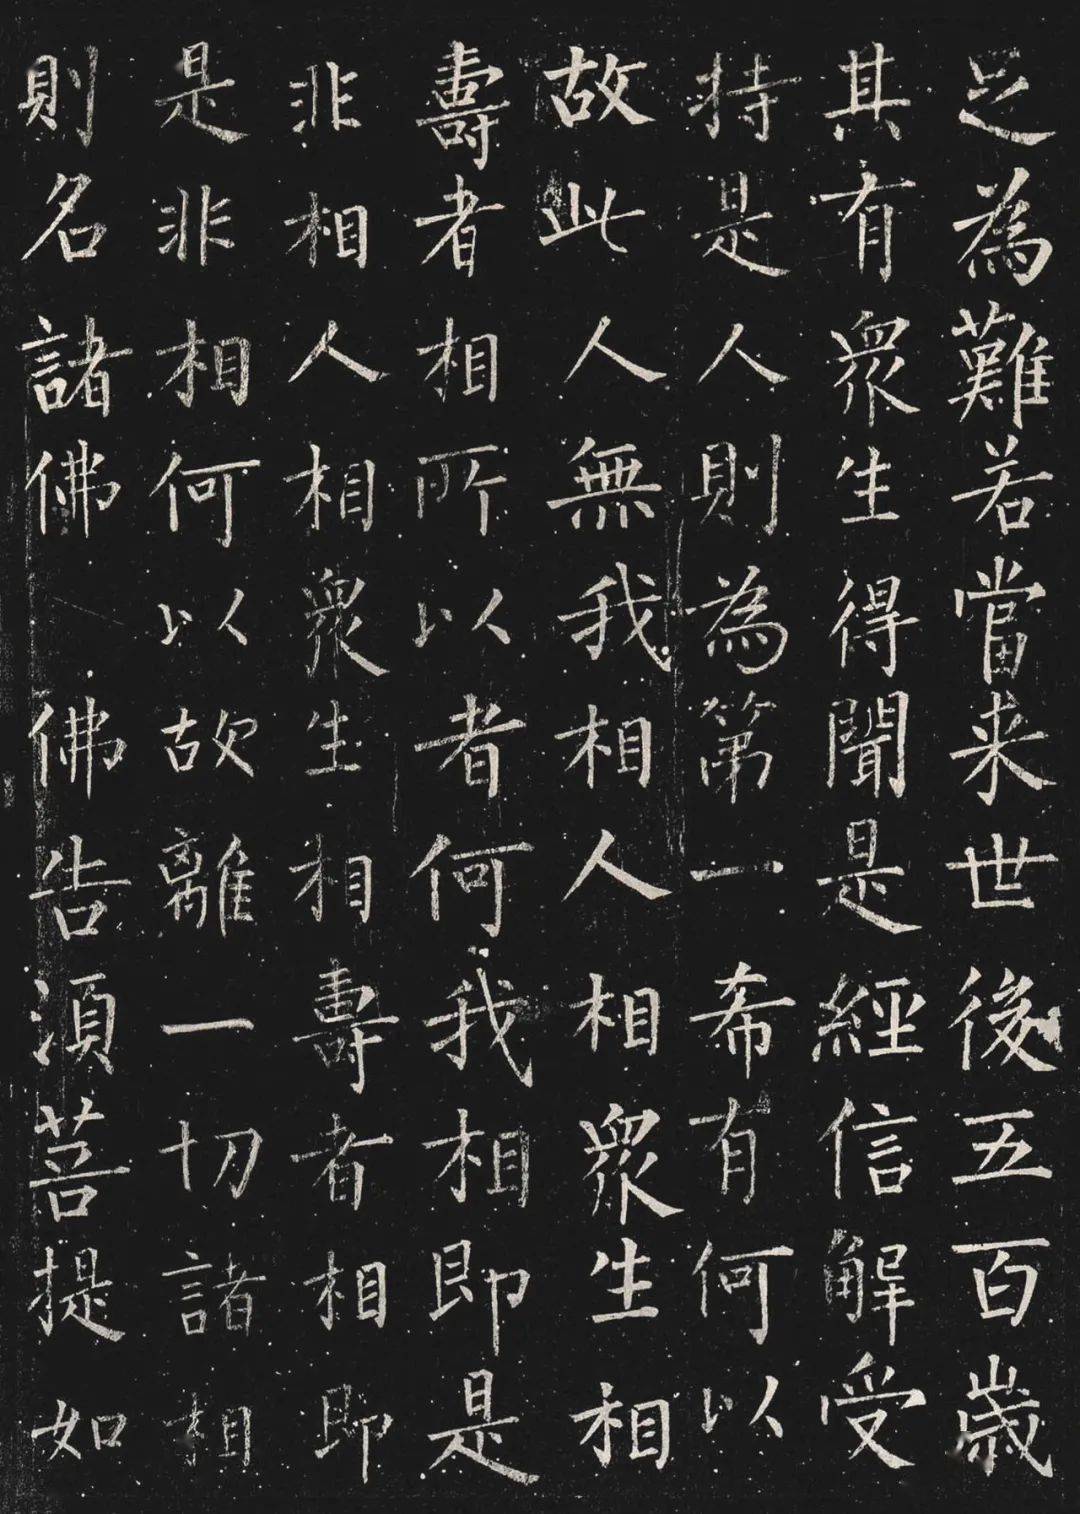 足為難若當来世後五百歲
其有眾生得聞是經信解受
持是人則為第一希有何以
故此人無我相人相眾生相
壽者相所以者何我相即是
非相人相眾生相壽者相即
是非相何以故離一切諸相
則名諸佛佛告須菩提如